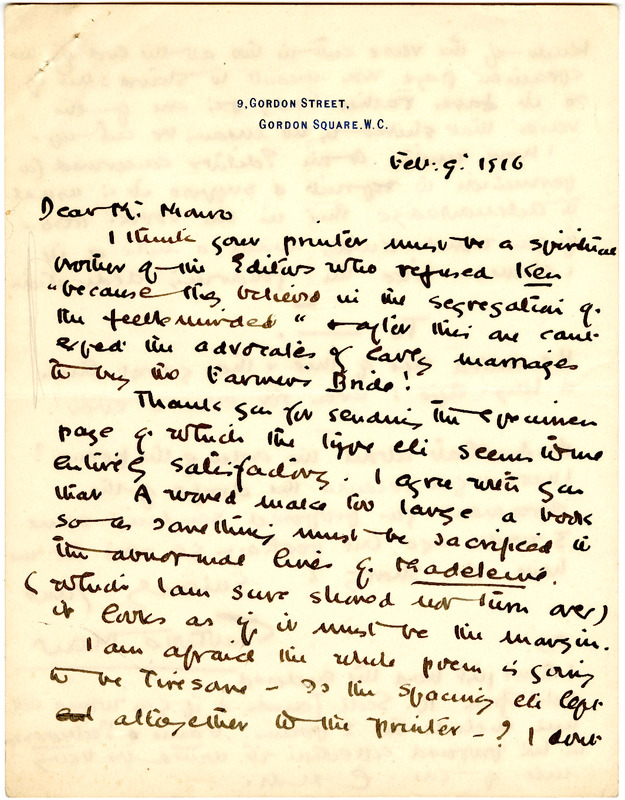 9, GORDON STREET,
GORDON SQUARE. W.C.
Feb. 9. 1916
Dear Mr. Monro
I think your printer must be a spiritual
brother of the Editors who refused Ken
"because they believed in the segregation of
the feebleminded" & after this one cant
expect the advocates of early marriages
to buy the Farmer's Bride!
Thank you for sending the specimen
page of which the type etc seems to me
entirely satisfactory. I agree with you
that A would make too large a book
so as something must be sacrificed to
the abnormal lines of Madeleine.
(which I am sure should not turn over)
it looks as if it must be the margin.
I am afraid the whole poem is going
to be tiresome – Is the spacing etc left
altogether to the printer – ? I dont